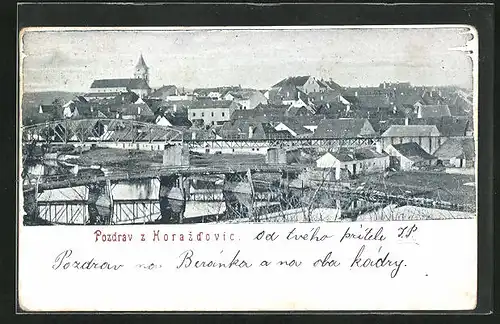 Pozdrav z Horažďovic. Od tvého přítele JP.
Pozdrav na Beránka a na oba kádry.